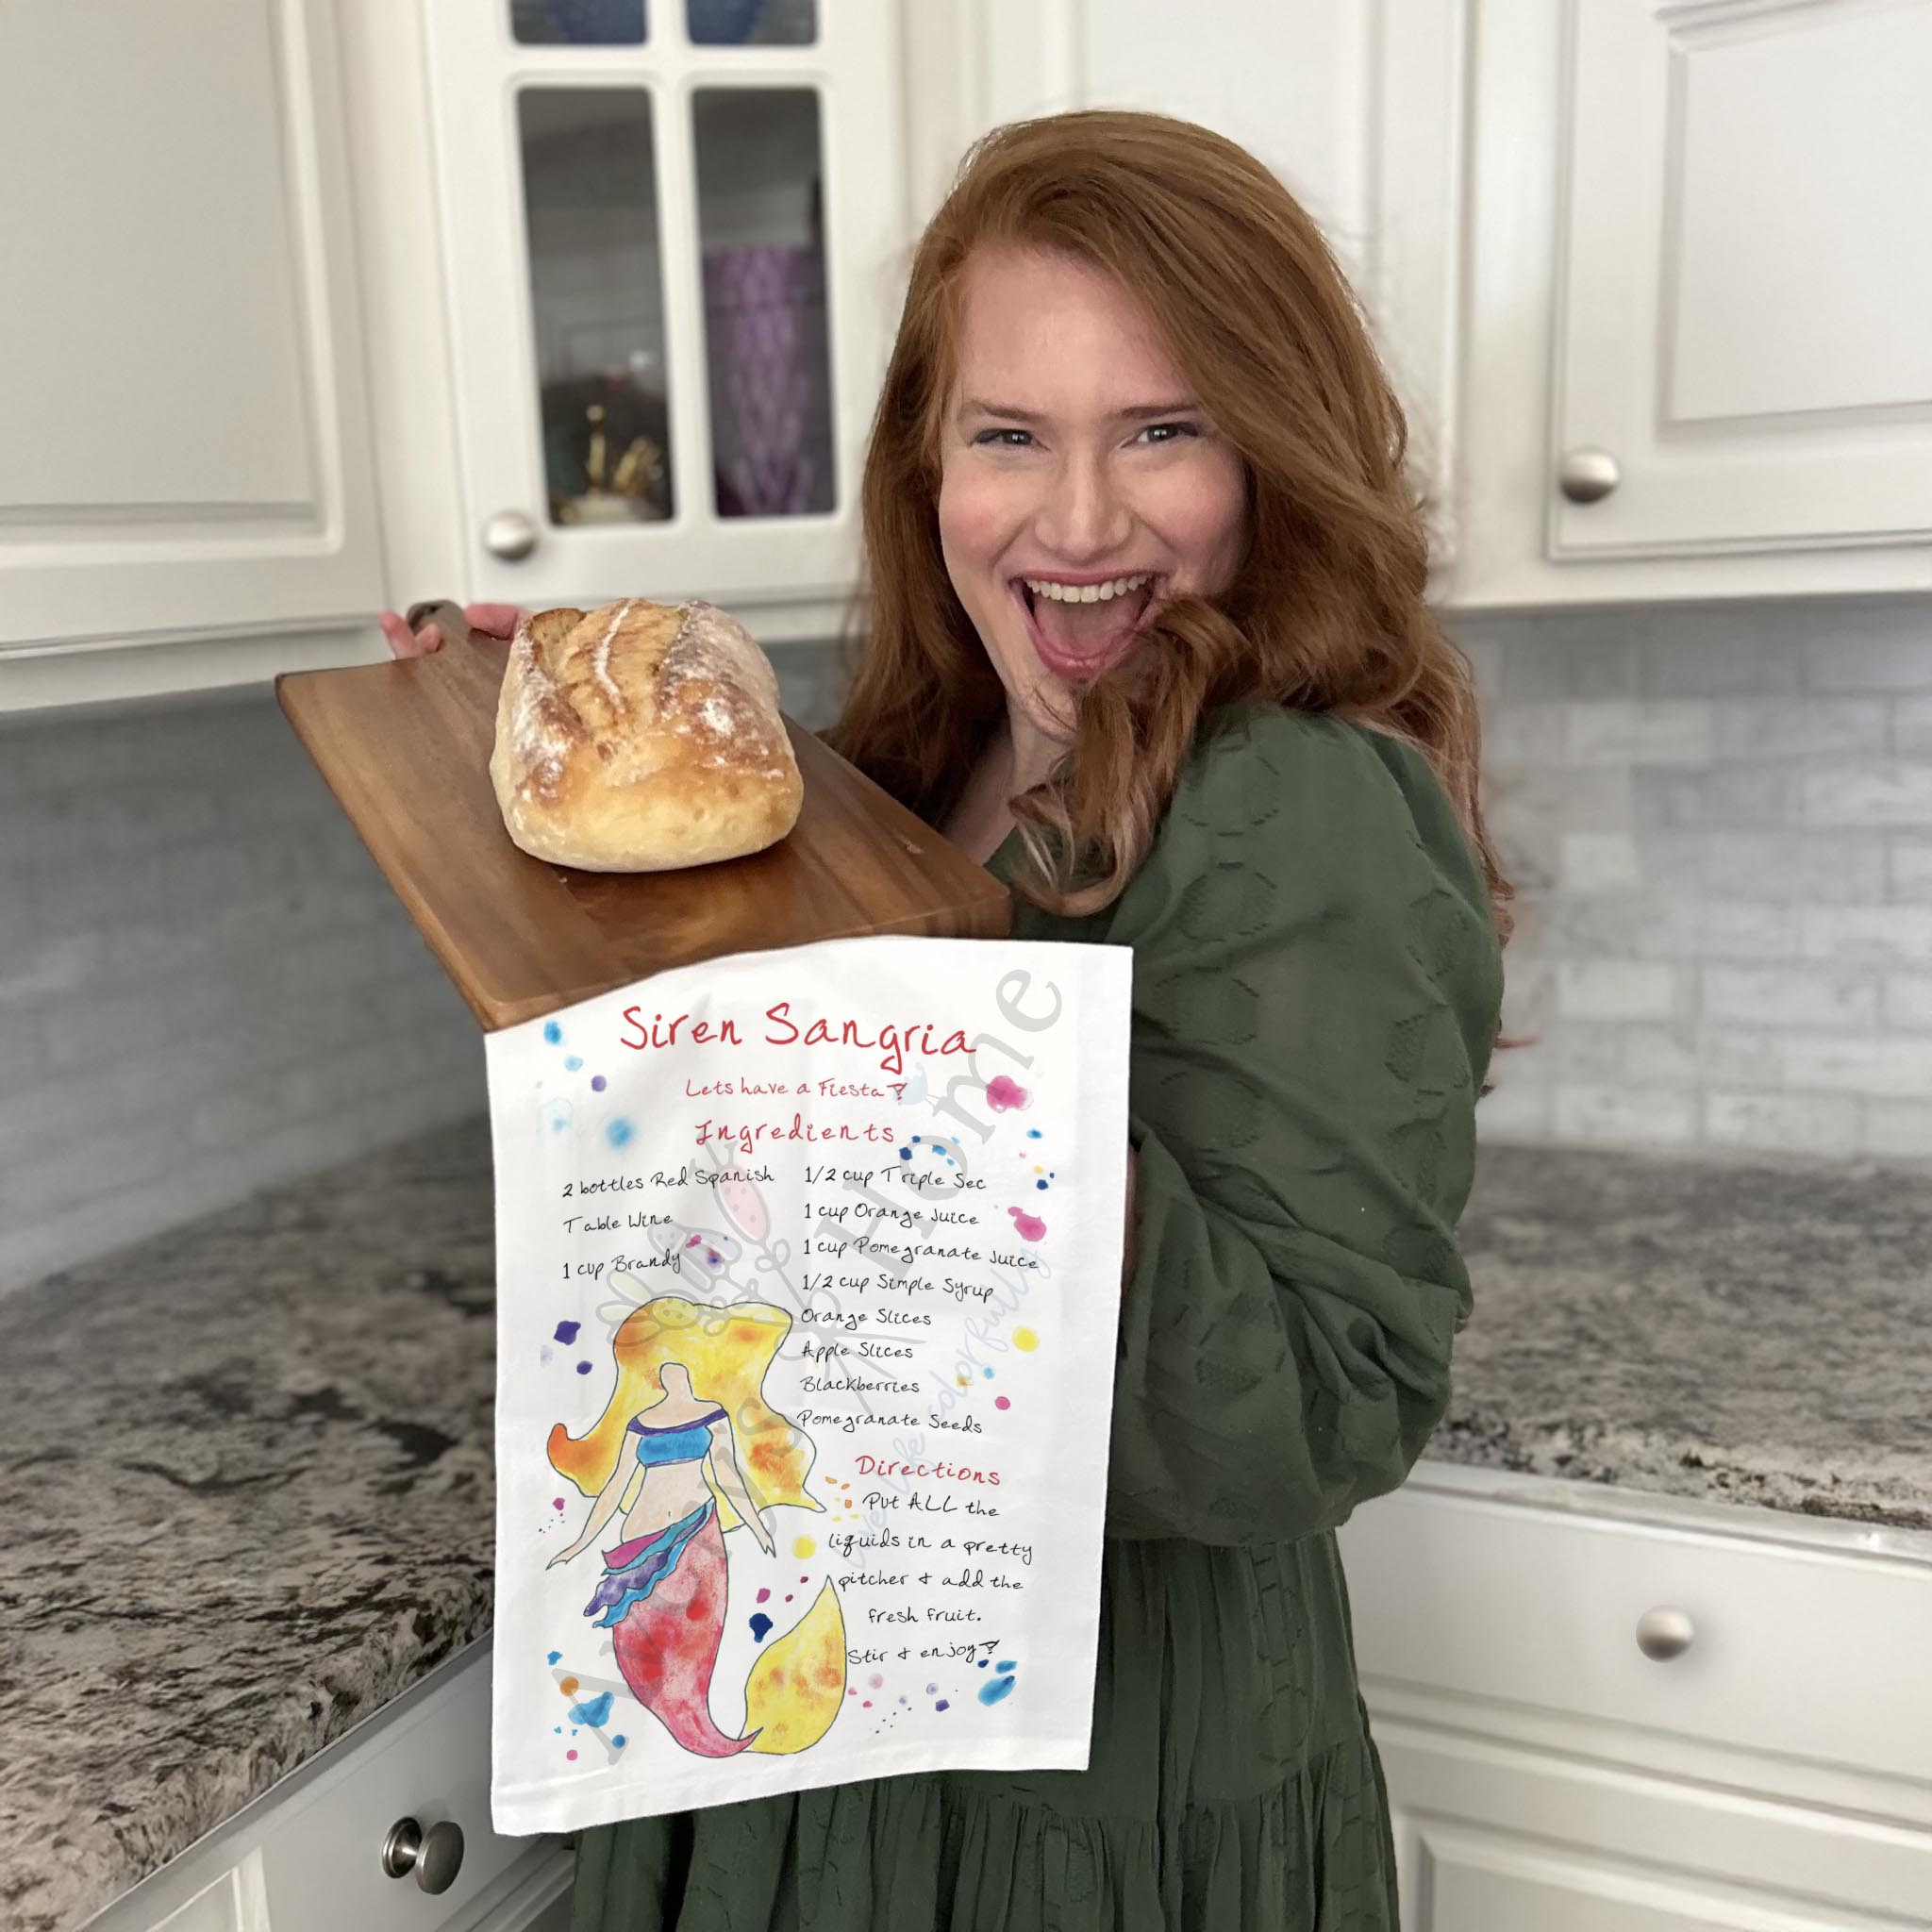 Siren Sangria
Lets have a Fiesta!
Ingredients
2 bottles Red Spanish
Table Wine
1 cup Brandy
1/2 cup Triple Sec
1 cup Orange Juice
1 cup Pomegranate Juice
1/2 cup Simple Syrup
Orange Slices
Apple Slices
Blackberries
Pomegranate Seeds
Directions
Put ALL the
liquids in a pretty
pitcher & add the
fresh fruit.
Stir & enjoy!
Home
live life colorfully